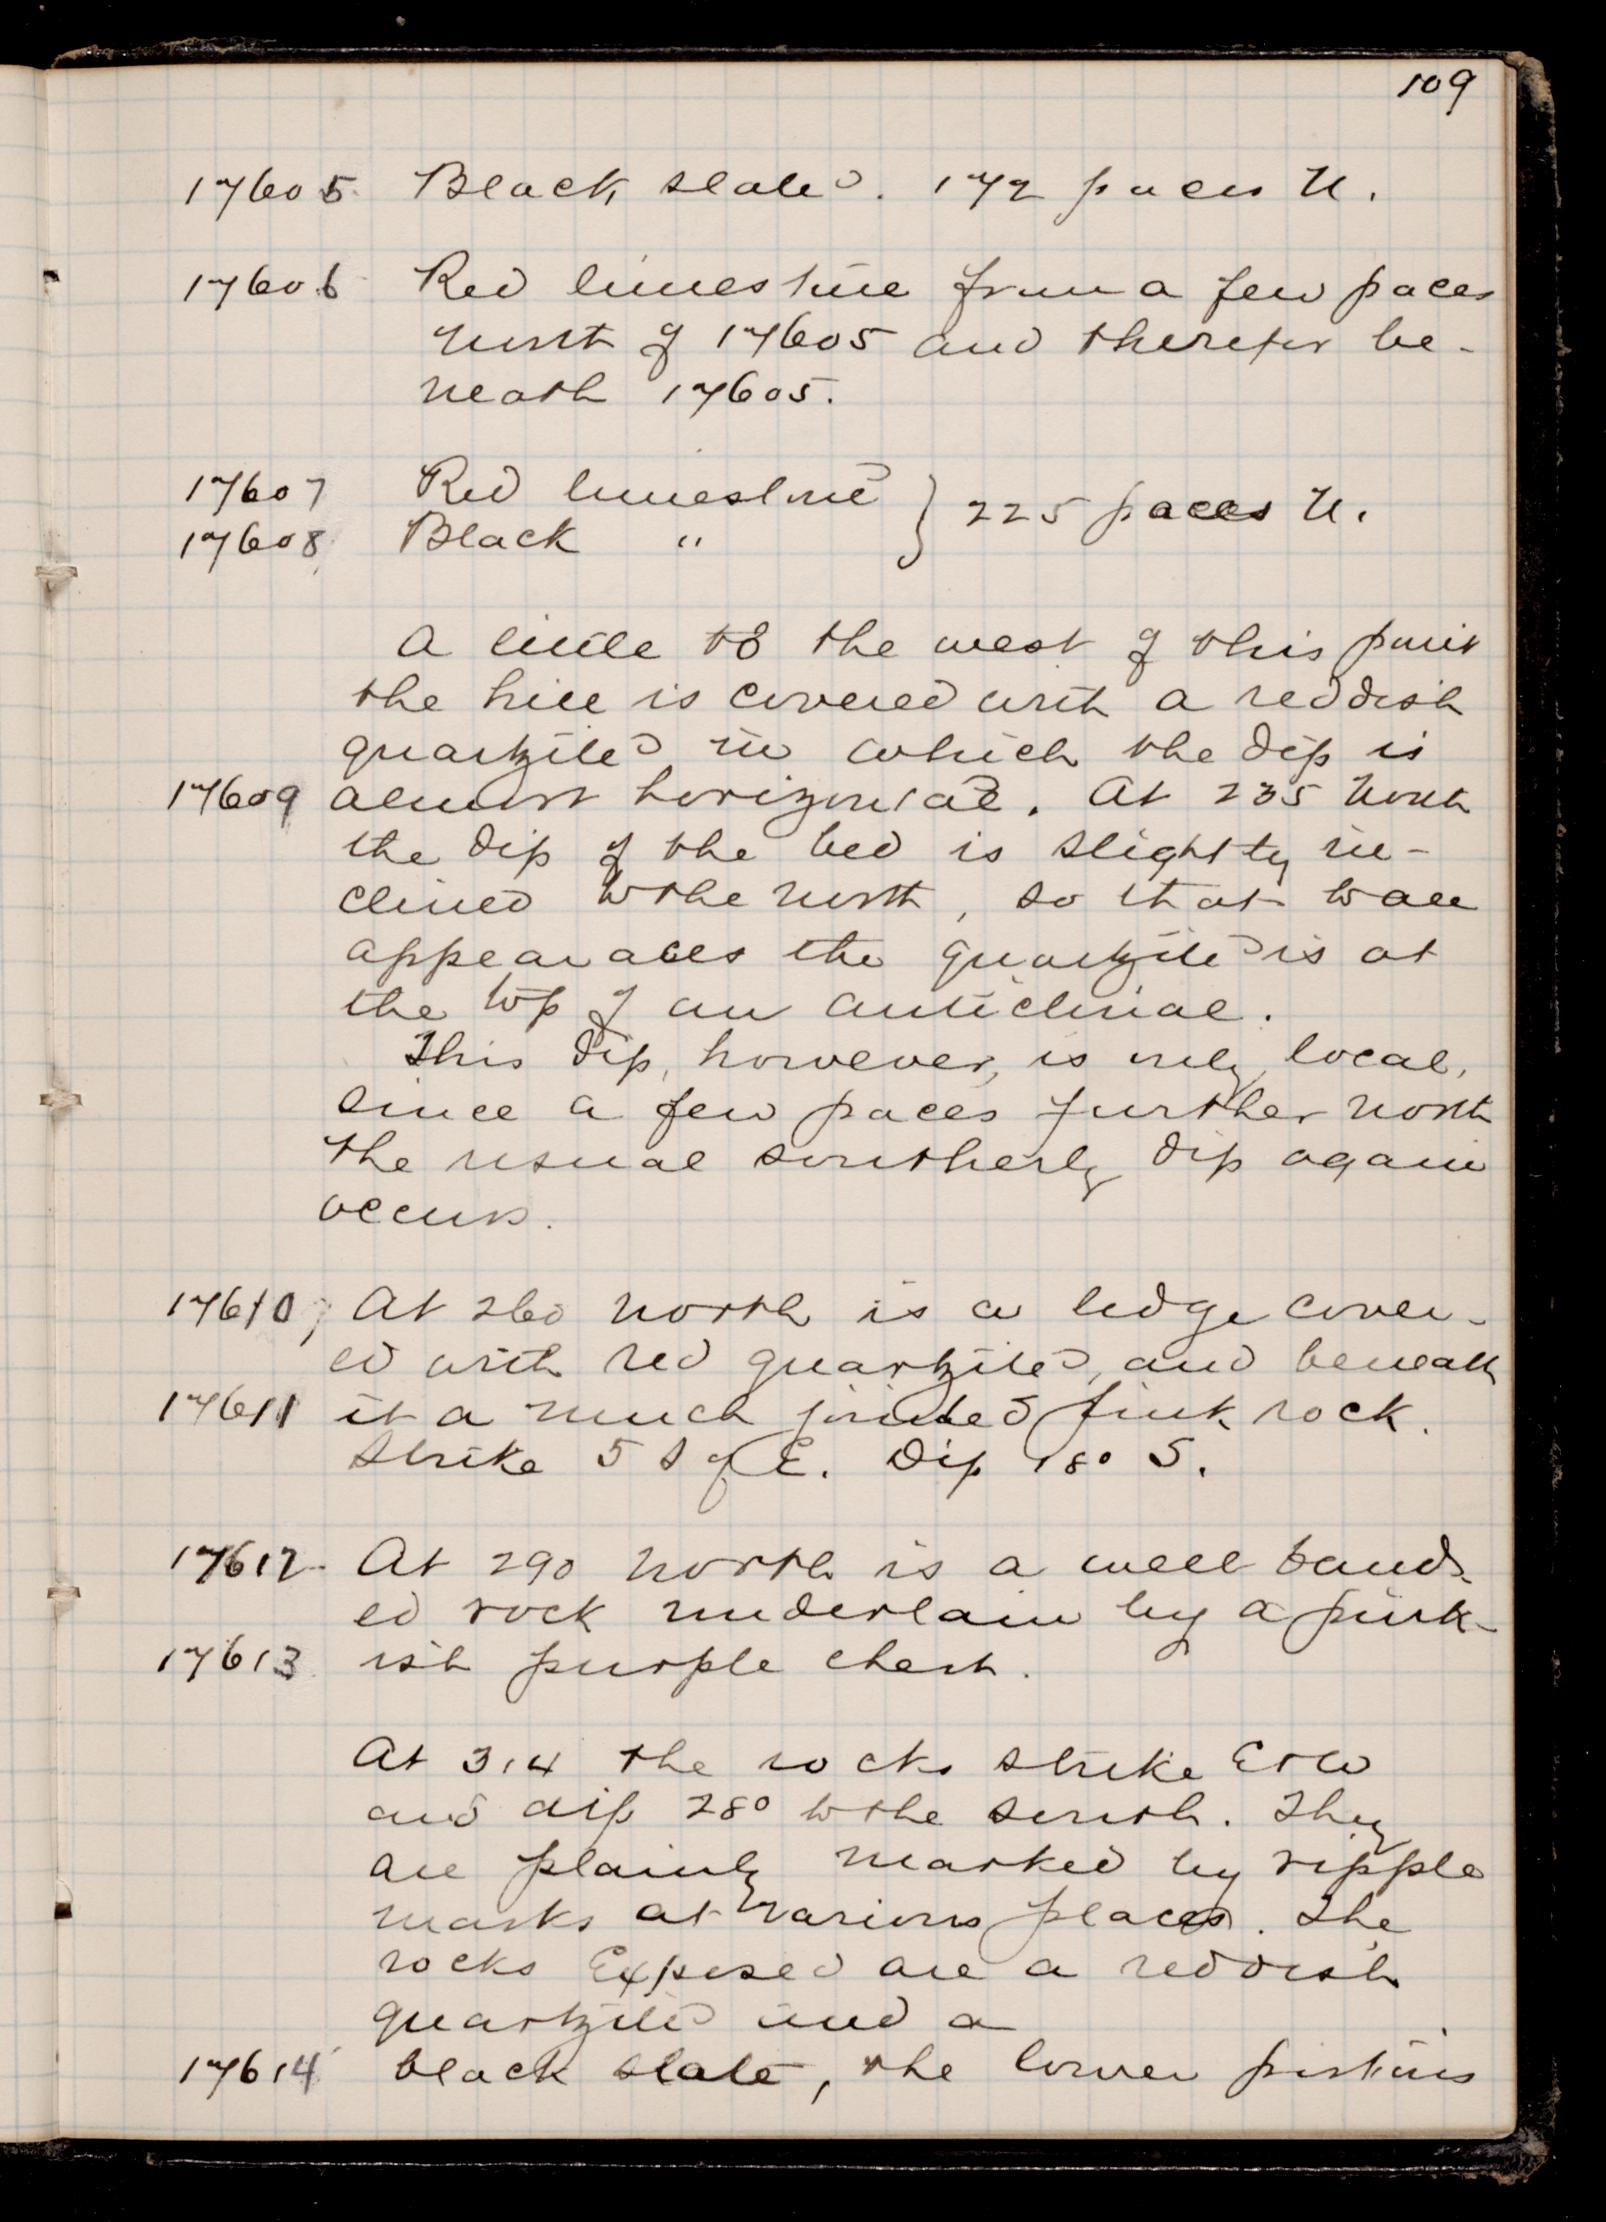 109
17605 Black slate. 172 paces N.
17606 Red limestone from a few paces
north of 17605 and therefor be-
neath 17605.
17607 Red limestone } 225 paces N.
17608 Black "
A little to the west of this point
the hill is covered with a reddish
quartzite in which the dip is
17609 almost horizontal. At 235 North
the dip of the bed is slightly in-
clined to the north, so that to all
appearances the quartzite is at
the top of an anticlinal.
This dip, however, is only local,
since a few paces further north
the usual southerly dip again
occurs.
17610, At 260 north is a ledge cover-
ed with red quartzite, and beneath
17611 it a much jointed pink rock.
Strike 5 S of E. Dip 18° S.
17612 At 290 north is a well band-
ed rock underlain by a pink-
17613 ish purple chert.
At 314 the rocks strike E+W
and dip 28° to the south. They
are plainly marked by ripple
marks at various places. The
rocks Exposed are a reddish
quartzite and a
17614 black slate, the lower portions